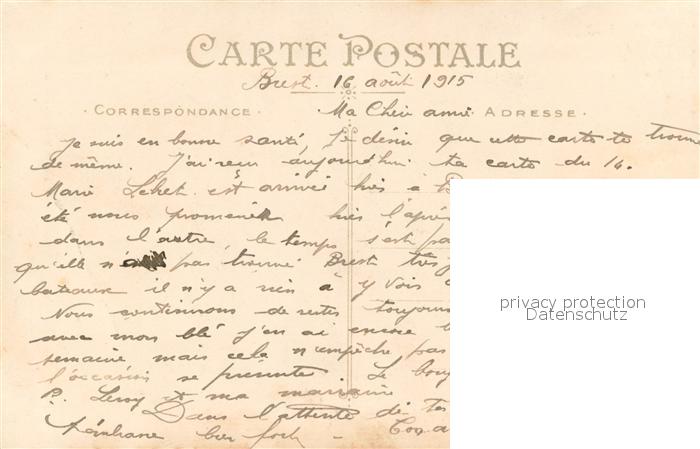 CARTE POSTALE
Brest. 16 août 1915
CORRESPONDANCE Ma Chère amie ADRESSE
Je suis en bonne santé, je désire que cette carte te trouve
de même. J'ai reçu aujourd'hui ta carte du 16.
Marie est arrivée hier à
été nous promener hier l'après
dans l'autre, le temps s'est
qu'elle pas trouvé Brest très
bateaux il n'y a rien à y voir
Nous continuons de rester toujours
avec mon blé j'en ai encore
semaine mais cela n'empêche pas
l'occasion se présente. Le
P. Leroy et ma marraine
Dans l'attente de
bien fort -
privacy protection
Datenschutz